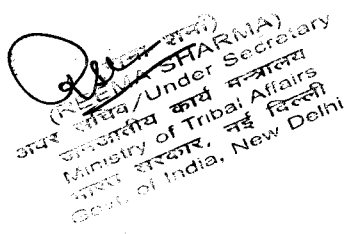 शर्मा)
(REEMA SHARMA)
अवर सचिव/Under Secretary
जनजातीय कार्य मन्त्रालय
Ministry of Tribal Affairs
भारत सरकार, नई दिल्ली
Govt. of India, New Delhi